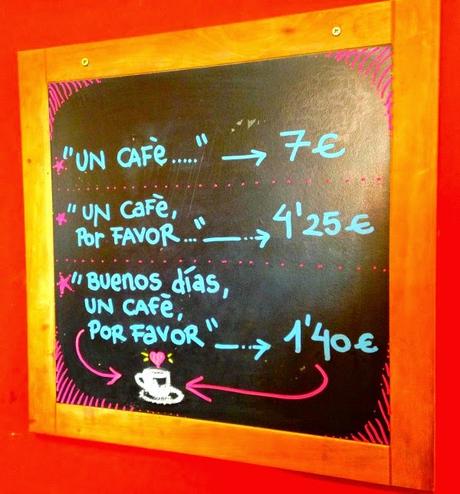 "UN CAFÈ....." → 7€
"UN CAFÈ,
POR FAVOR..." → 4'25€
"BUENOS días,
UN CAFÈ,
POR FAVOR" → 1'40€